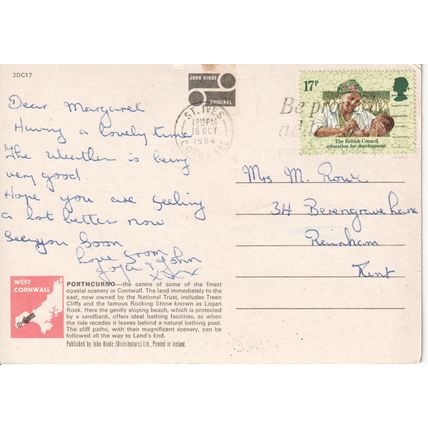 2DC17
JOHN HINDE
ORIGINAL
ST. IVES
12 15 PM
16 OCT
1984
CORNWALL
Be pro
ad
17P
The British Council
education for development
Dear Margaret
Having a lovely time
The Weather is being
very good.
Hope you are feeling
a lot better now.
See you Soon
Love from
Joya & John
xxx
Mrs M. Rowe
34 Berengrave Lane
Rainham
Kent
WEST
CORNWALL
PORTHCURNO—the centre of some of the finest
coastal scenery in Cornwall. The land immediately to the
east, now owned by the National Trust, includes Treen
Cliffs and the famous Rocking Stone known as Logan
Rock. Here the gently sloping beach, which is protected
by a sandbank, offers ideal bathing facilities, as when
the tide recedes it leaves behind a natural bathing pool.
The cliff paths, with their magnificent scenery, can be
followed all the way to Land's End.
Published by John Hinde (Distributors) Ltd., Printed in Ireland.